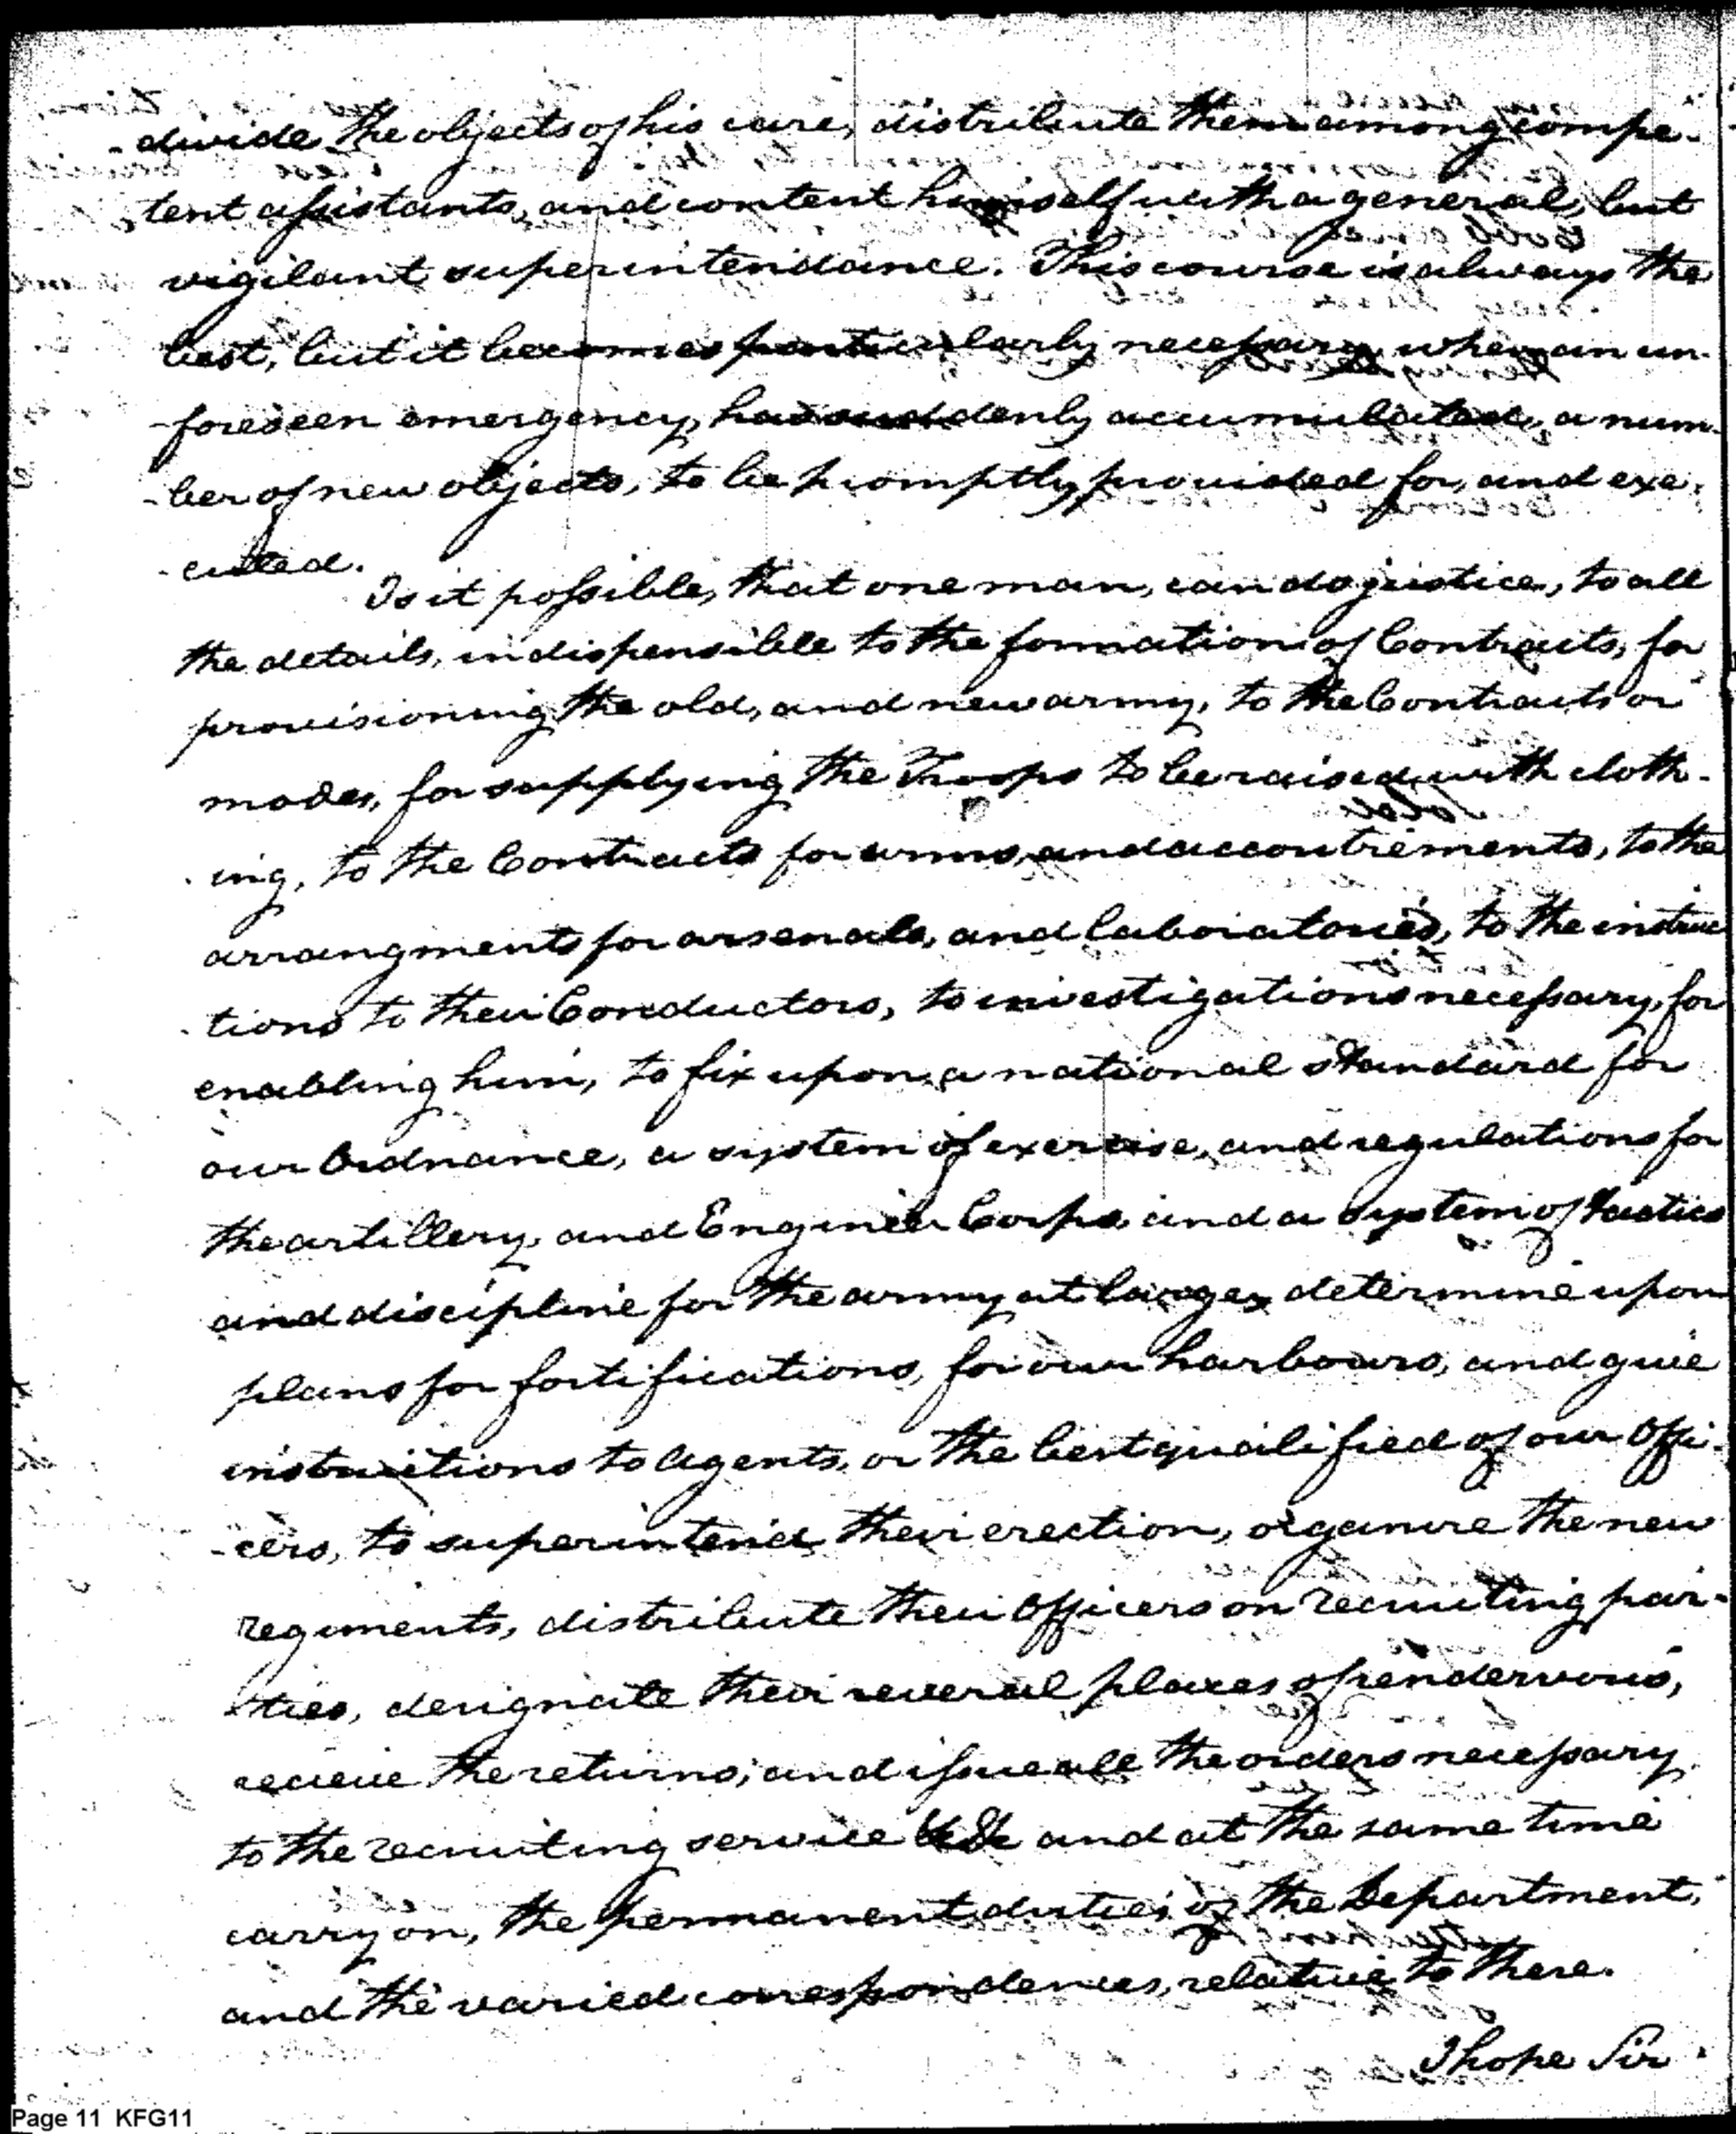 - divide the objects of his care, distribute them among compe-
- tent assistants, and content himself with a general, but
vigilant superintendance. This course is always the
best, but it becomes particularly necessary, when an un-
-foreseen emergency, has suddenly accumulated, a num-
-ber of new objects, to be promptly provided for, and exe-
-cuted.
Is it possible, that one man, can do justice, to all
the details, indispensible to the formation of Contracts, for
provisioning the old, and new army, to the Contracts or
modes, for supplying the Troops to be raised with cloth-
-ing, to the Contracts for arms, and accoutrements, to the
arrangments for arsenals, and laboratories, to the instruc
-tions to their Conductors, to investigations necessary, for
enabling him, to fix upon, a national standard for
our Ordnance, a system of exercise, and regulations for
the artillery, and Engineer Corps, and a system of tactics
and discipline for the army at large, determine upon
plans for fortifications, for our harbours, and give
instructions to Agents, or the best qualified of our Offi-
-cers, to superintend their erection, organize the new
regiments, distribute their Officers on recruiting par-
-ties, designate their several places of rendezvous,
recieve the returns, and issue all the orders necessary
to the recruiting service &c &c and at the same time
carry on, the permanent duties of the Department,
and the varied correspondences, relative to these.
I hope Sir
Page 11 KFG11